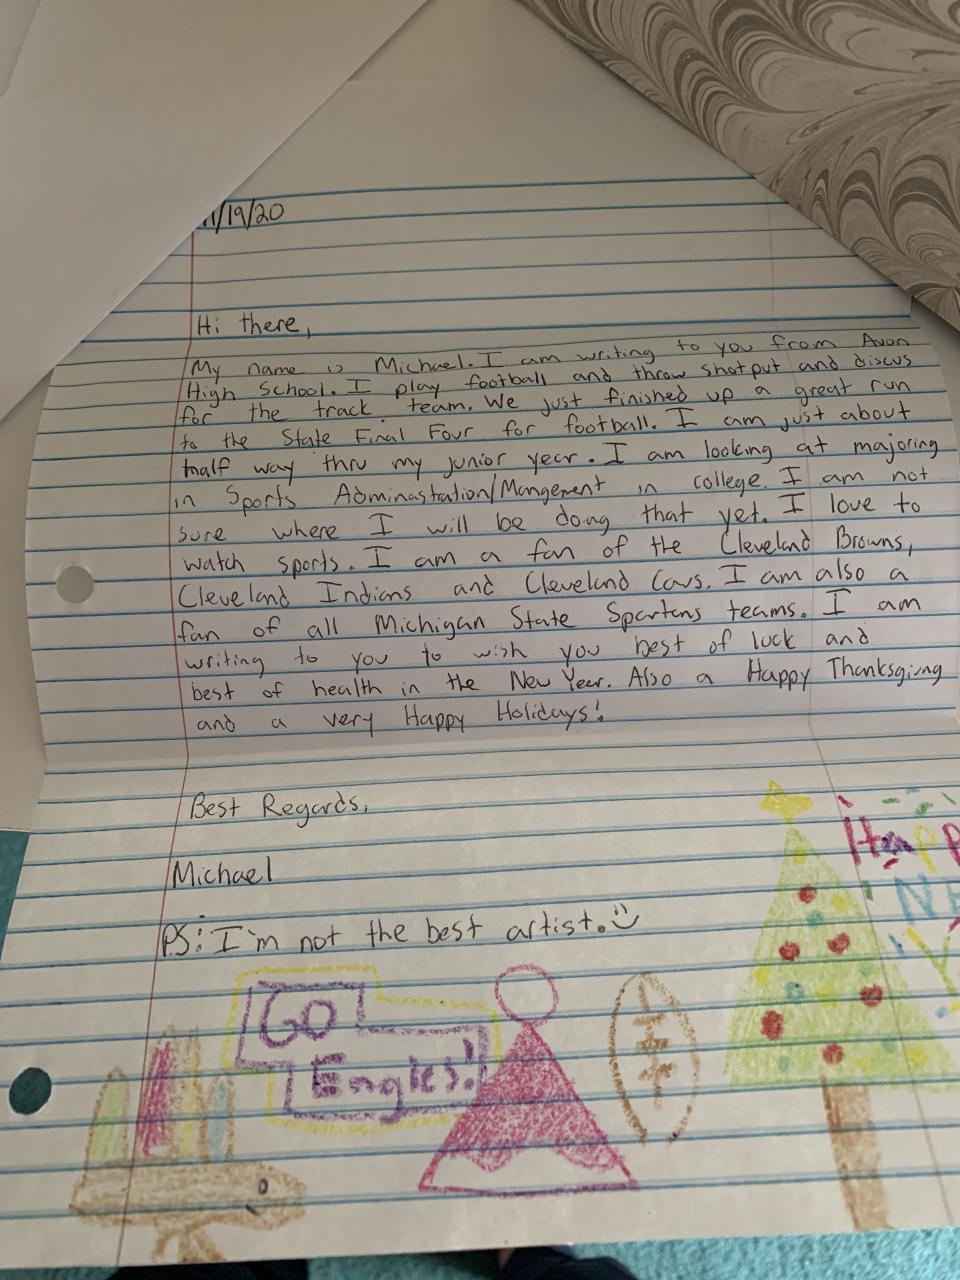 11/19/20
Hi there,
My name is Michael. I am writing to you from Avon
High School. I play football and throw shotput and discus
for the track team. We just finished up a great run
to the State Final Four for football. I am just about
half way thru my junior year. I am looking at majoring
in Sports Adminastration/Mangement in college. I am not
sure where I will be doing that yet. I love to
watch sports. I am a fan of the Cleveland Browns,
Cleveland Indians and Cleveland Cavs. I am also a
fan of all Michigan State Spartans teams. I am
writing to you to wish you best of luck and
best of health in the New Year. Also a Happy Thanksgiving
and a very Happy Holidays!
Best Regards,
Michael
PS: I'm not the best artist. :)
Go
Eagles!
Happ
NE
Y